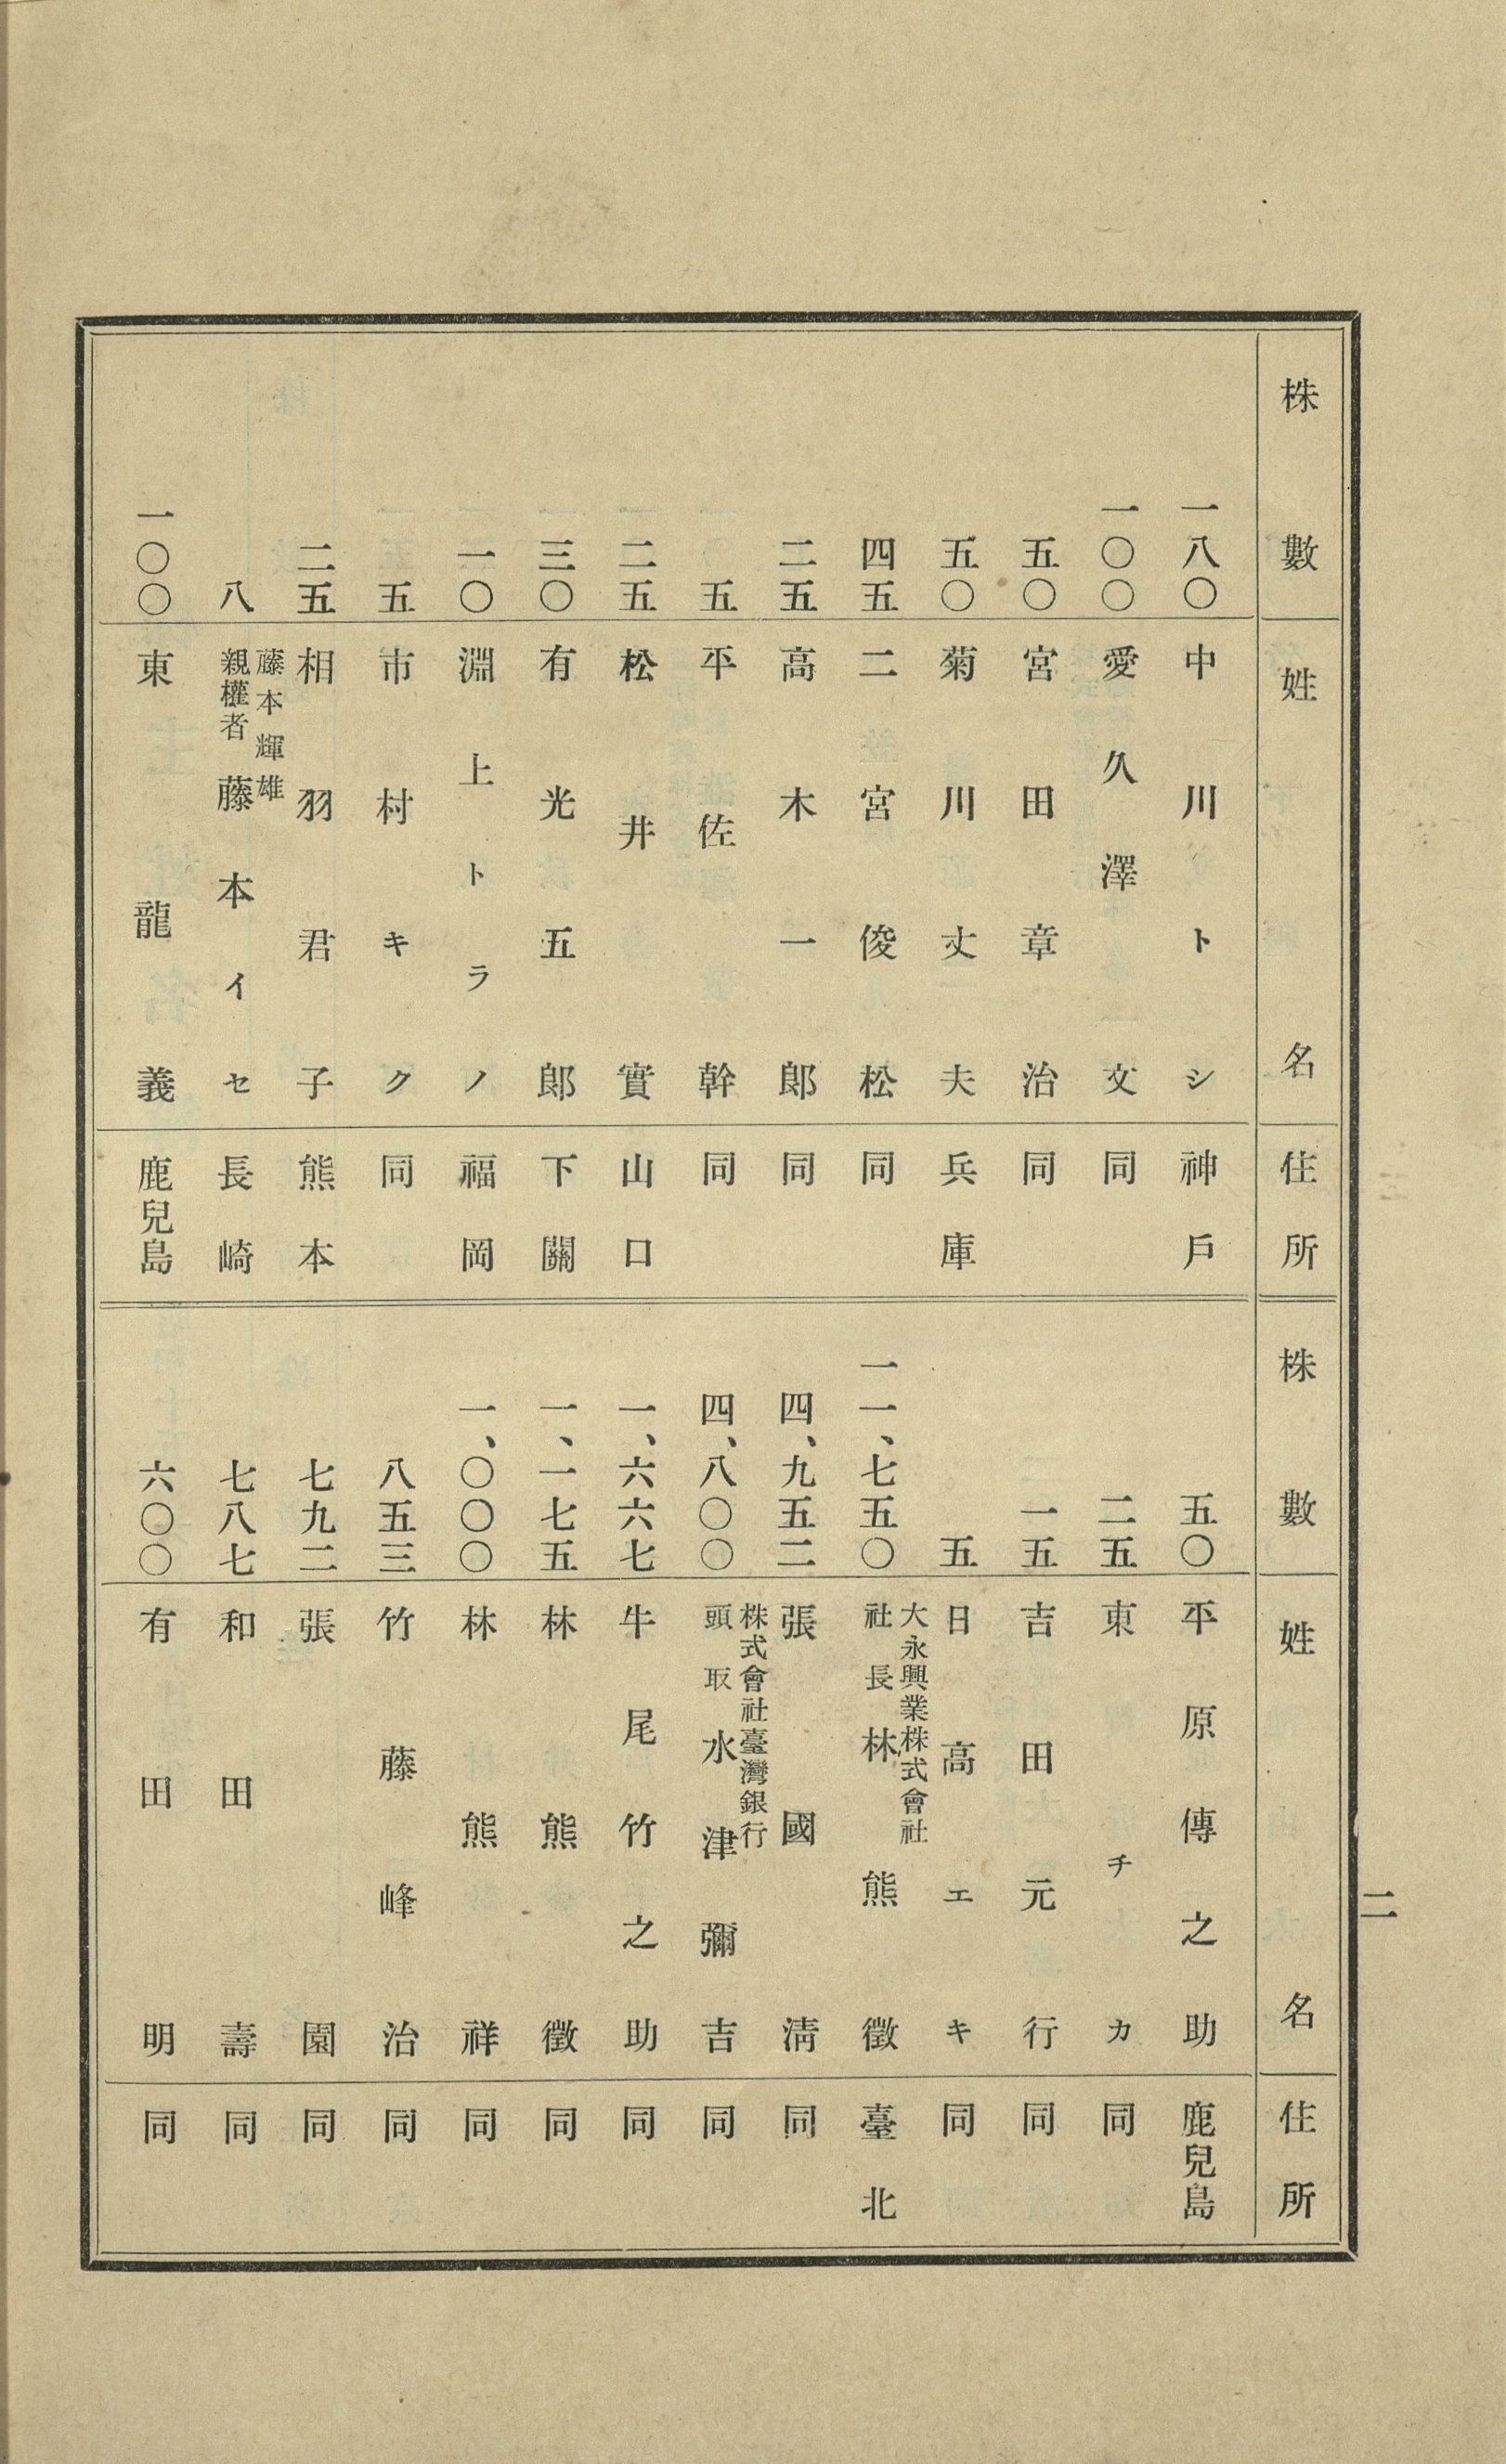 株數 姓名 住所
一八〇 中川トシ 神戶
一〇〇 愛久澤文 同
五〇 宮田章治 同
五〇 菊川丈夫 兵庫
四五 二宮俊松 同
二五 高木一郞 同
五 平佐幹 同
二五 松井實 山口
三〇 有光五郞 下關
一〇 淵上トラノ 福岡
五 市村キク 同
二五 相羽君子 熊本
八 藤本輝雄
親權者 藤本イセ 長崎
一〇〇 東龍義 鹿兒島
株數 姓名 住所
五〇 平原傳之助 鹿兒島
二五 東チカ 同
一五 吉田元行 同
五 日高エキ 同
一一、七五〇 大永興業株式會社
社長 林熊徵 臺北
四、九五二 張國淸 同
四、八〇〇 株式會社臺灣銀行
頭取 水津彌吉 同
一、六六七 牛尾竹之助 同
一、一七五 林熊徵 同
一、〇〇〇 林熊祥 同
八五三 竹藤峰治 同
七九二 張園 同
七八七 和田壽 同
六〇〇 有田明 同
二